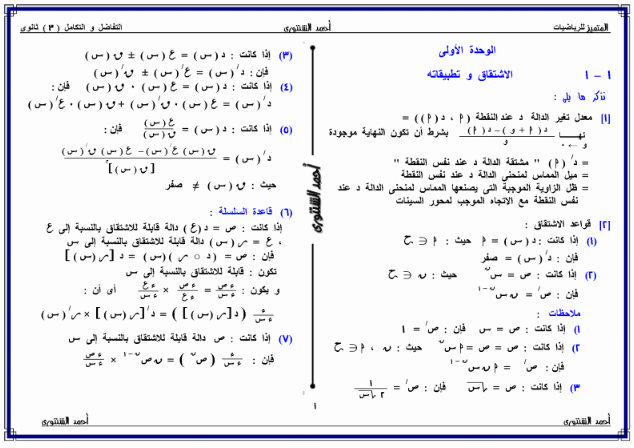 المتميز للرياضيات
أحمد الشنتوري
التفاضل و التكامل ( ٣ ) ثانوى
الوحدة الأولى
١ – ١ الاشتقاق و تطبيقاته
تذكر ما يلى :
[١] معدل تغير الدالة د عند النقطة ( ٢ ، د ( ٢ ) ) =
نهــــا و ← ٠ د ( ٢ + و ) – د ( ٢ ) / و بشرط أن تكون النهاية موجودة
= دَ ( ٢ ) " مشتقة الدالة د عند نفس النقطة "
= ميل المماس لمنحنى الدالة د عند نفس النقطة
= ظل الزاوية الموجبة التى يصنعها المماس لمنحنى الدالة د عند
نفس النقطة مع الاتجاه الموجب لمحور السينات
[٢] قواعد الاشتقاق :
(١) إذا كانت : د ( س ) = ٢ حيث : ٢ ∈ ح
فإن : دَ ( س ) = صفر
(٢) إذا كانت : ص = س^ن حيث : ن ∈ ح
فإن : صَ = ن س^ن – ١
ملاحظات :
١) إذا كانت : ص = س فإن : صَ = ١
٢) إذا كانت : ص = ص = ٢ س^ن حيث : ن ، ٢ ∈ ح
فإن : صَ = ٢ ن س^ن – ١
٣) إذا كانت : ص = √س فإن : صَ = ١ / ٢ √س
(٣) إذا كانت : د ( س ) = ع ( س ) ± ق ( س )
فإن : دَ ( س ) = عَ ( س ) ± قَ ( س )
(٤) إذا كانت : د ( س ) = ع ( س ) · ق ( س ) فإن :
دَ ( س ) = ع ( س ) · قَ ( س ) + ق ( س ) · عَ ( س )
(٥) إذا كانت : د ( س ) = ع ( س ) / ق ( س ) فإن :
دَ ( س ) = ق ( س ) عَ ( س ) – ع ( س ) قَ ( س ) / [ ق ( س ) ]^٢
حيث : ق ( س ) ≠ صفر
(٦) قاعدة السلسلة :
إذا كانت : ص = د ( ع ) دالة قابلة للاشتقاق بالنسبة إلى ع
، ع = ر ( س ) دالة قابلة للاشتقاق بالنسبة إلى س
فإن : ص = ( د ○ ر ) ( س ) = د [ ر ( س ) ]
تكون : قابلة للاشتقاق بالنسبة إلى س
و يكون : ء ص / ء س = ء ص / ء ع × ء ع / ء س أى أن :
ء / ء س ( د [ ر ( س ) ] ) = دَ [ ر ( س ) ] × رَ ( س )
(٧) إذا كانت : ص دالة قابلة للاشتقاق بالنسبة إلى س
فإن : ء / ء س ( ص^ن ) = ن ص^ن – ١ × ء ص / ء س
أحمد الشنتوري
١
أحمد الشنتوري
أحمد الشنتوري